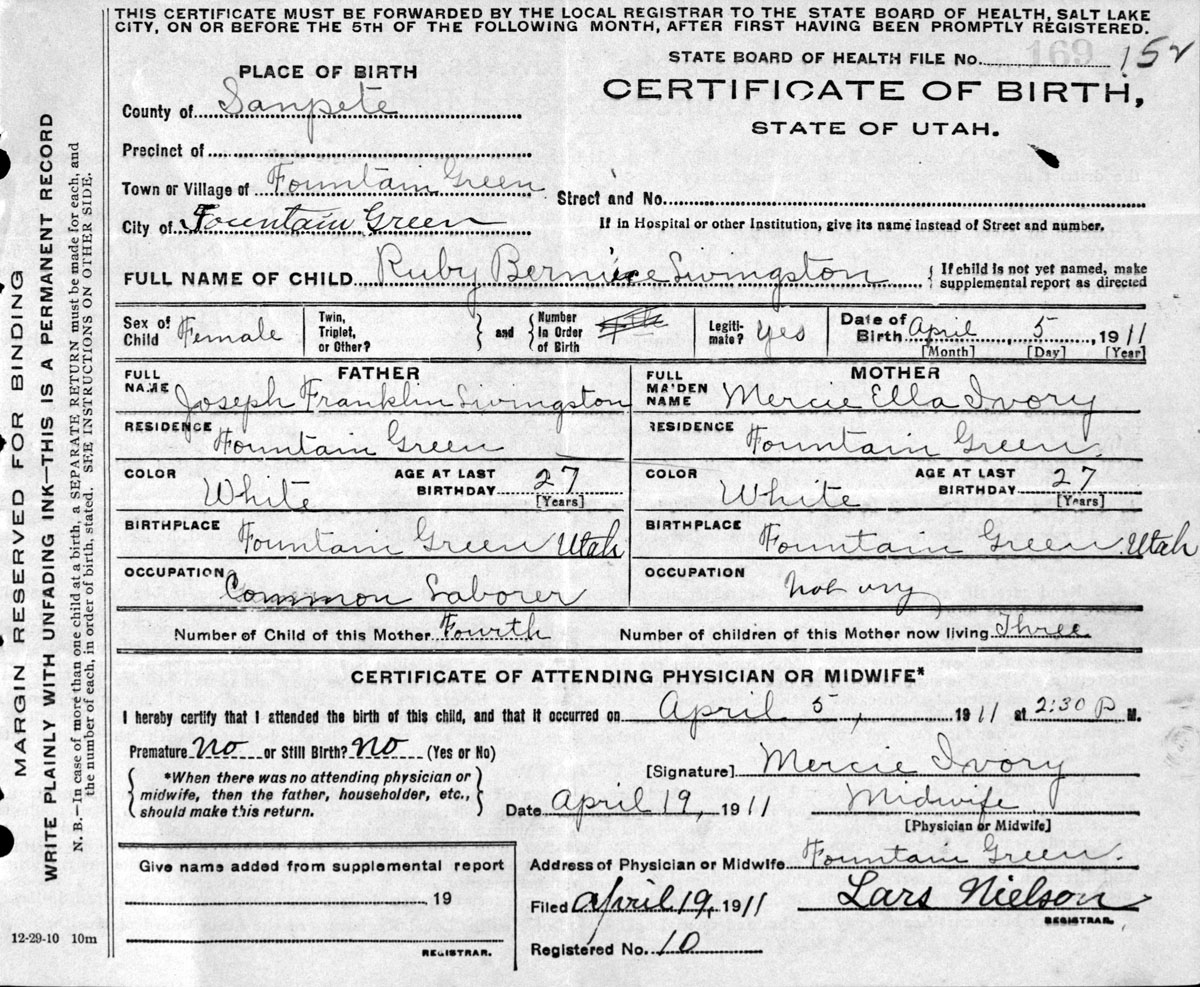 THIS CERTIFICATE MUST BE FORWARDED BY THE LOCAL REGISTRAR TO THE STATE BOARD OF HEALTH, SALT LAKE
CITY, ON OR BEFORE THE 5TH OF THE FOLLOWING MONTH, AFTER FIRST HAVING BEEN PROMPTLY REGISTERED.
169
STATE BOARD OF HEALTH FILE No. 152
CERTIFICATE OF BIRTH,
STATE OF UTAH.
PLACE OF BIRTH
County of Sanpete
Precinct of
Town or Village of Fountain Green
Street and No.
City of Fountain Green
If in Hospital or other Institution, give its name instead of Street and number.
FULL NAME OF CHILD Ruby Berniece Livingston
{ If child is not yet named, make
supplemental report as directed
Sex of Child Female
Twin, Triplet, or Other?
} and { Number in Order of Birth
Legiti- mate? yes
Date of Birth April 5, 1911
[Month] [Day] [Year]
FATHER
FULL NAME Joseph Franklin Livingston
RESIDENCE Fountain Green
COLOR White AGE AT LAST BIRTHDAY 27 [Years]
BIRTHPLACE Fountain Green Utah
OCCUPATION Common Laborer
MOTHER
FULL MAIDEN NAME Mercie Ella Ivory
RESIDENCE Fountain Green.
COLOR White AGE AT LAST BIRTHDAY 27 [Years]
BIRTHPLACE Fountain Green. Utah
OCCUPATION Not any
Number of Child of this Mother Fourth Number of children of this Mother now living Three
CERTIFICATE OF ATTENDING PHYSICIAN OR MIDWIFE*
I hereby certify that I attended the birth of this child, and that it occurred on April 5, 1911 at 2:30 P M.
Premature No or Still Birth? No (Yes or No)
{ *When there was no attending physician or
midwife, then the father, householder, etc.,
should make this return. }
[Signature] Mercie Ivory
Date April 19, 1911 Midwife
[Physician or Midwife]
Address of Physician or Midwife Fountain Green.
Filed April 19, 1911 Lars Nielson
REGISTRAR.
Registered No. 10
Give name added from supplemental report
19
REGISTRAR.
12-29-10 10m
MARGIN RESERVED FOR BINDING
WRITE PLAINLY WITH UNFADING INK—THIS IS A PERMANENT RECORD
N. B.—In case of more than one child at a birth, a SEPARATE RETURN must be made for each, and
the number of each, in order of birth, stated. SEE INSTRUCTIONS ON OTHER SIDE.